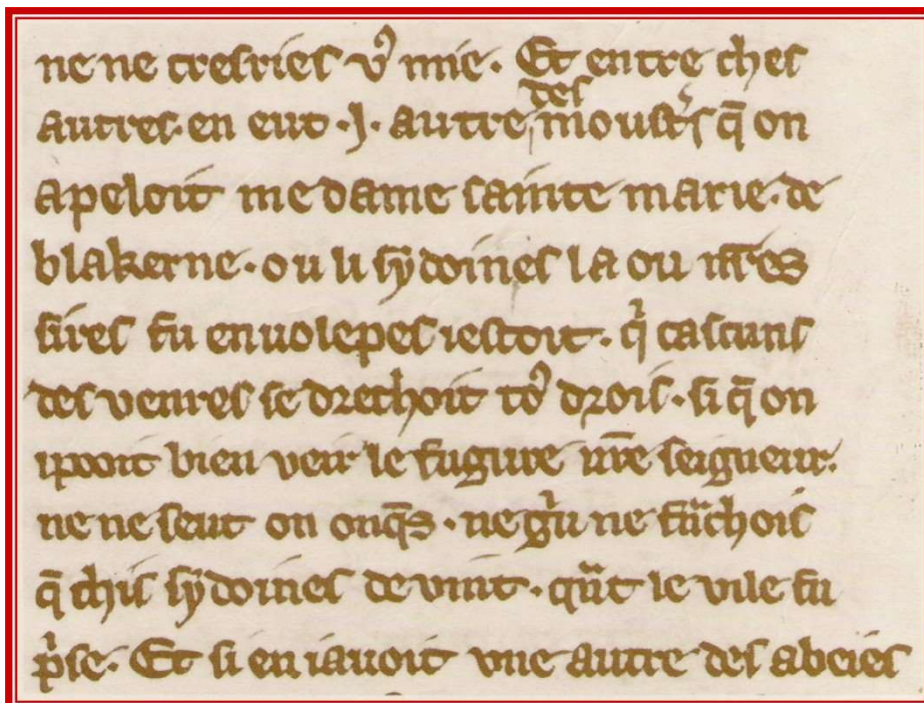 ne ne cresries vꝰ mie. Et entre ches
autres. en eut .j. autre des moustˢ q̄ on
apeloit me dame sainte marie. de
blakerne. ou li sydoines la ou nr̄es
sires fu enuolepes iestoit. qⁱ cascuns
des venres se drechoit toꝰ drois. si q̄ on
ipooit bien veir le fugure nr̄e seigneur.
ne ne seut on onq̄s. ne gⁱu ne franchois
q̄ chis sydoines de vint. quāt le vile fu
pⁱse. Et si en iauoit vne autre des abeies